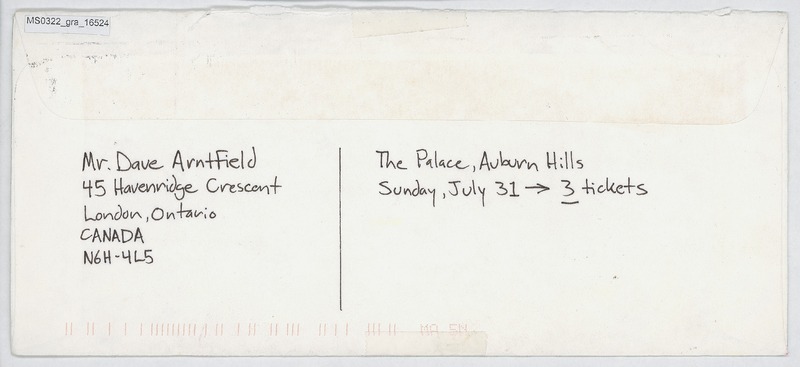 MS0322_gra_16524
Mr. Dave Arntfield
45 Havenridge Crescent
London, Ontario
CANADA
N6H-4L5
The Palace, Auburn Hills
Sunday, July 31 → 3 tickets